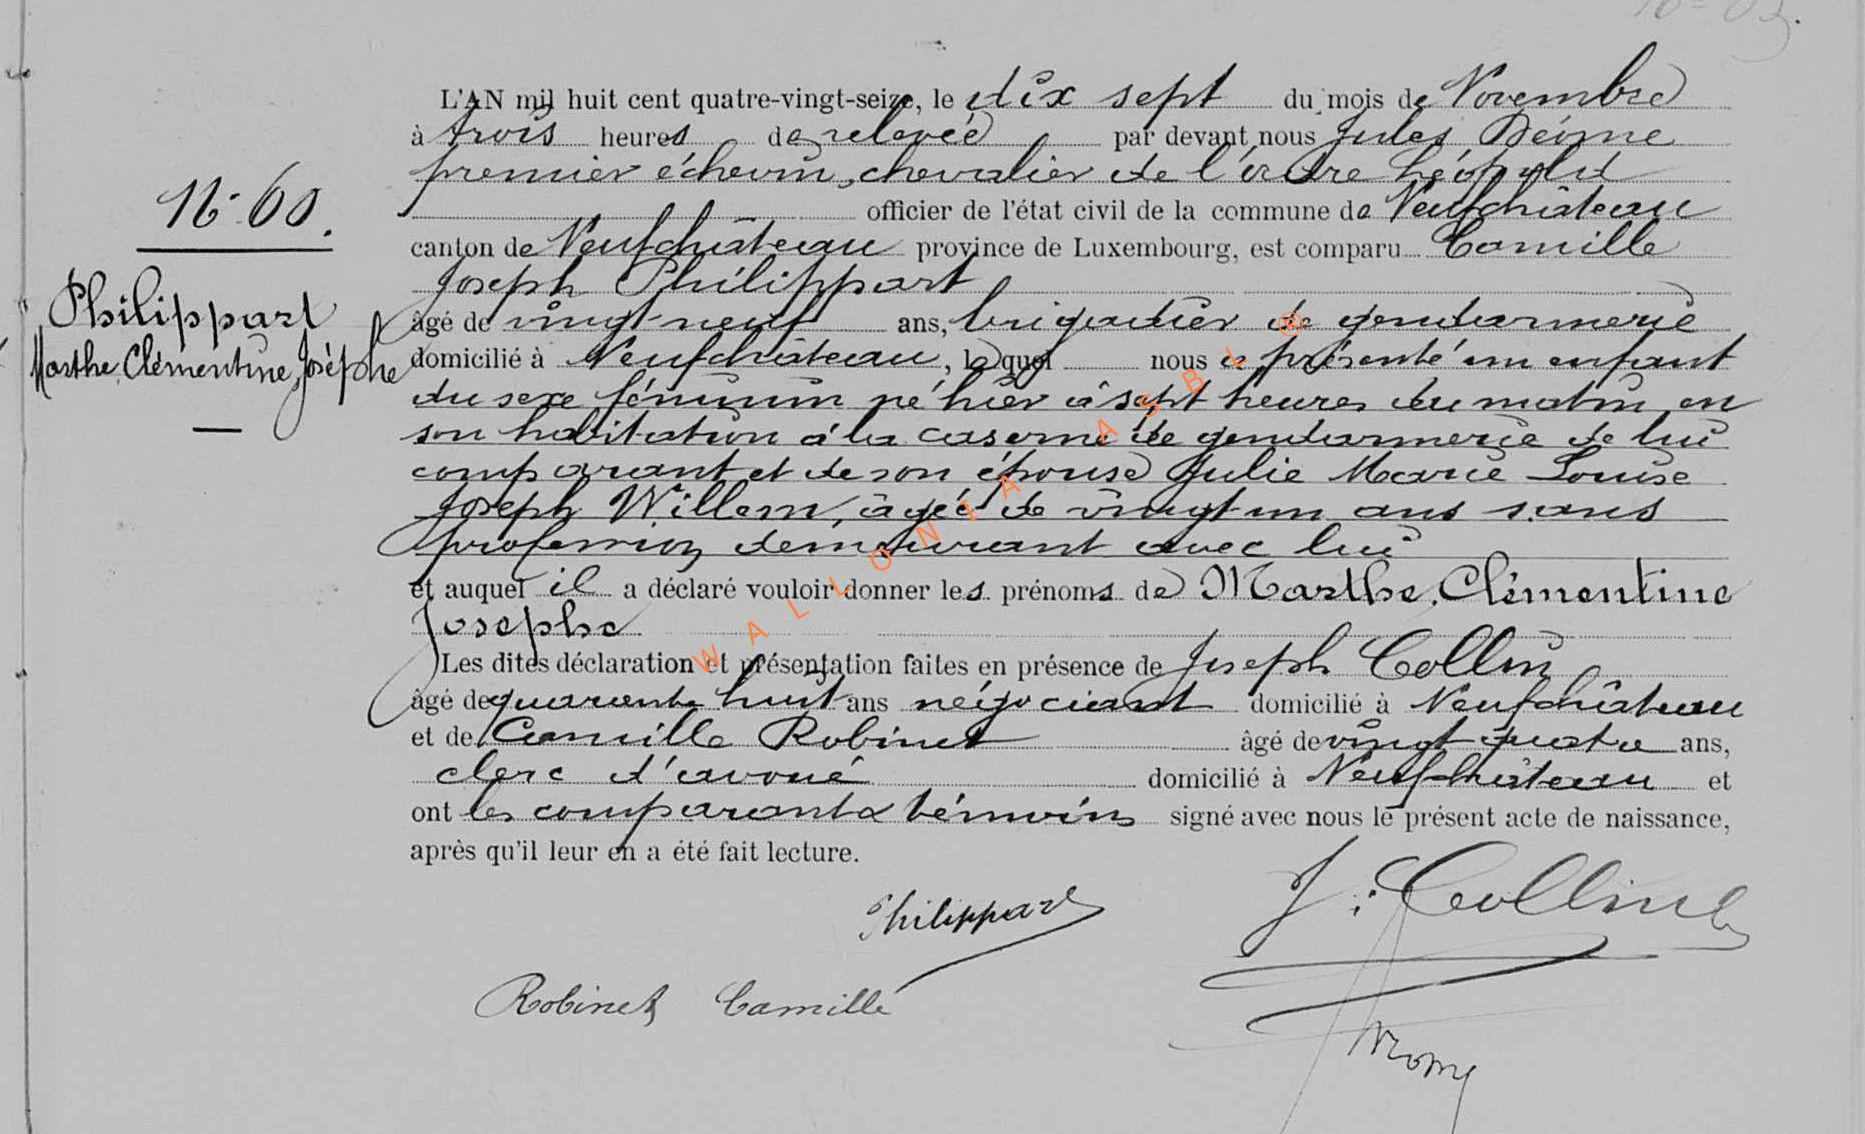 N° 60.
Philippart
Marthe, Clémentine, Josèphe
L'AN mil huit cent quatre-vingt-seize, le dix sept du mois de Novembre
à trois heures de relevée par devant nous Jules
premier échevin, chevalier de l'ordre Léopold
officier de l'état civil de la commune de Neufchâteau
canton de Neufchâteau province de Luxembourg, est comparu Camille
Joseph Philippart
âgé de vingt neuf ans, brigadier de gendarmerie
domicilié à Neufchâteau, lequel nous a présenté un enfant
du sexe féminin né hier à sept heures du matin en
son habitation à la caserne de gendarmerie de lui
comparant et de son épouse Julie Marie Louise
Joseph Willem, âgée de vingt un ans sans
profession demeurant avec lui
et auquel il a déclaré vouloir donner les prénoms de Marthe, Clémentine
Josephe
Les dites déclaration et présentation faites en présence de Joseph Collin
âgé de quarante huit ans négociant domicilié à Neufchâteau
et de Camille Robinet âgé de vingt quatre ans,
clerc d'avoué domicilié à Neufchâteau et
ont les comparant & témoins signé avec nous le présent acte de naissance,
après qu'il leur en a été fait lecture.
Philippart
J. Collin
Robinet Camille
WALLONIA ASBL ®